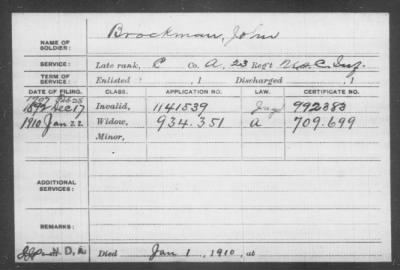 NAME OF SOLDIER: Brockman, John
SERVICE: Late rank, P Co. A, 23 Reg't U.S.C. Inf.
TERM OF SERVICE: Enlisted , 1 Discharged , 1
DATE OF FILING. CLASS. APPLICATION NO. LAW. CERTIFICATE NO.
1892 Dec 17 Invalid, 1141539 992383
1910 Jan 22 Widow, 934.351 A 709.699
Minor,
ADDITIONAL SERVICES:
REMARKS:
N.D. Died Jan 1, 1910, at